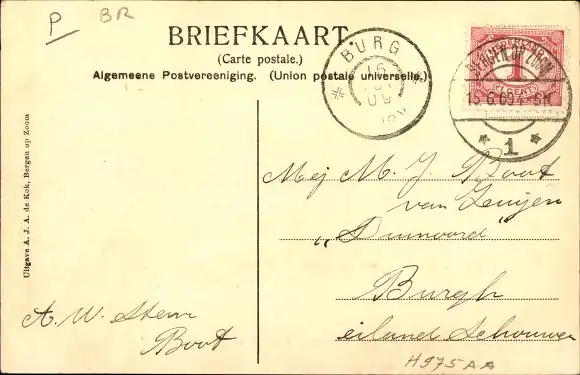 P
BR
BRIEFKAART.
(Carte postale.)
Algemeene Postvereeniging. (Union postale universelle.)
BURG
BERGEN OP ZOOM
1
Uitgave A. J. A. de Kok, Bergen op Zoom
Mej M. J. Boot
van Zuijen
„Duinoord"
Burgh
eiland Schouwen
A. W. Stern
Boot
H975AA